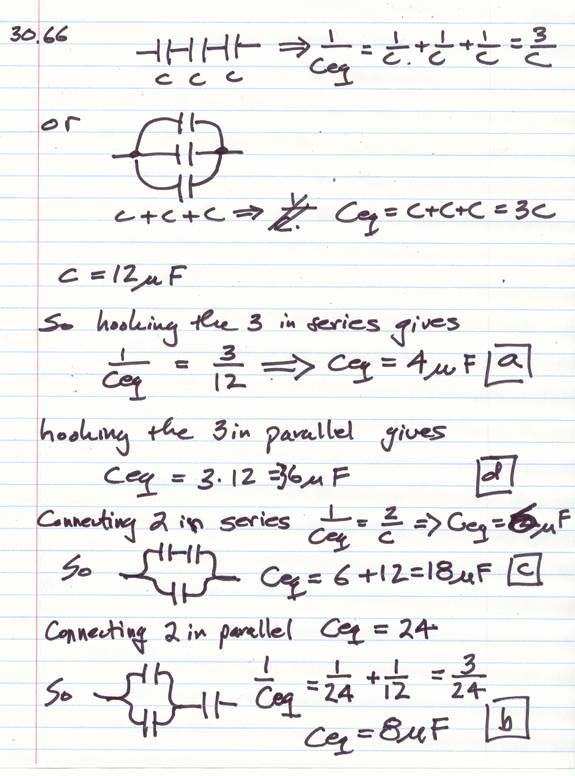 30.66
⇒ 1/Ceq = 1/C. + 1/C + 1/C = 3/C
C C C
or
C + C + C ⇒ Ceq = C+C+C = 3C
C = 12 μF
So hooking the 3 in series gives
1/Ceq = 3/12 ⇒ Ceq = 4 μF a
hooking the 3 in parallel gives
Ceq = 3·12 = 36 μF d
Connecting 2 in series 1/Ceq = 2/C ⇒ Ceq = 6 μF
So Ceq = 6 + 12 = 18 μF c
Connecting 2 in parallel Ceq = 24
So 1/Ceq = 1/24 + 1/12 = 3/24
Ceq = 8 μF b